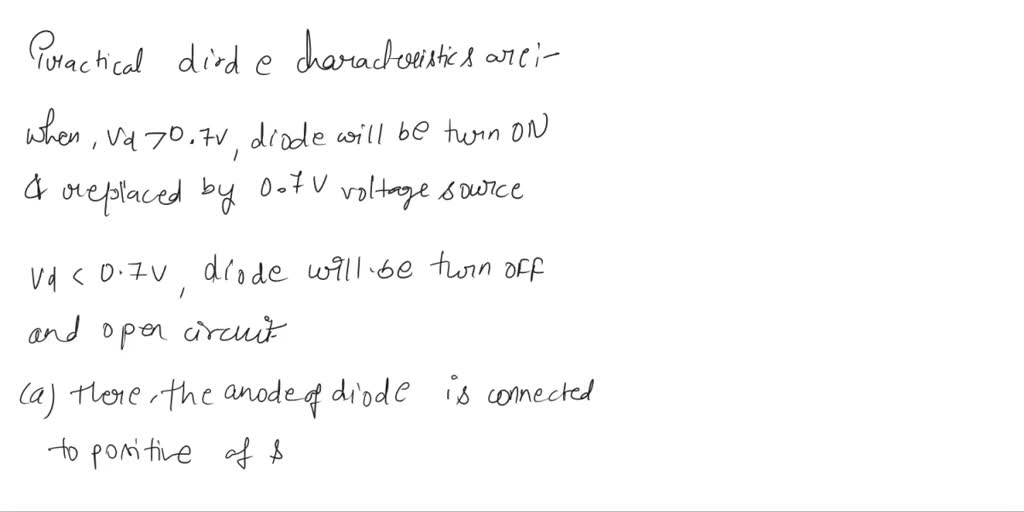 Practical diode characteristics are:-
when, Vd >0.7V, diode will be turn ON
& replaced by 0.7V voltage source
Vd < 0.7V, diode will be turn off
and open circuit
(a) Here, the anode of diode is connected
to positive of s